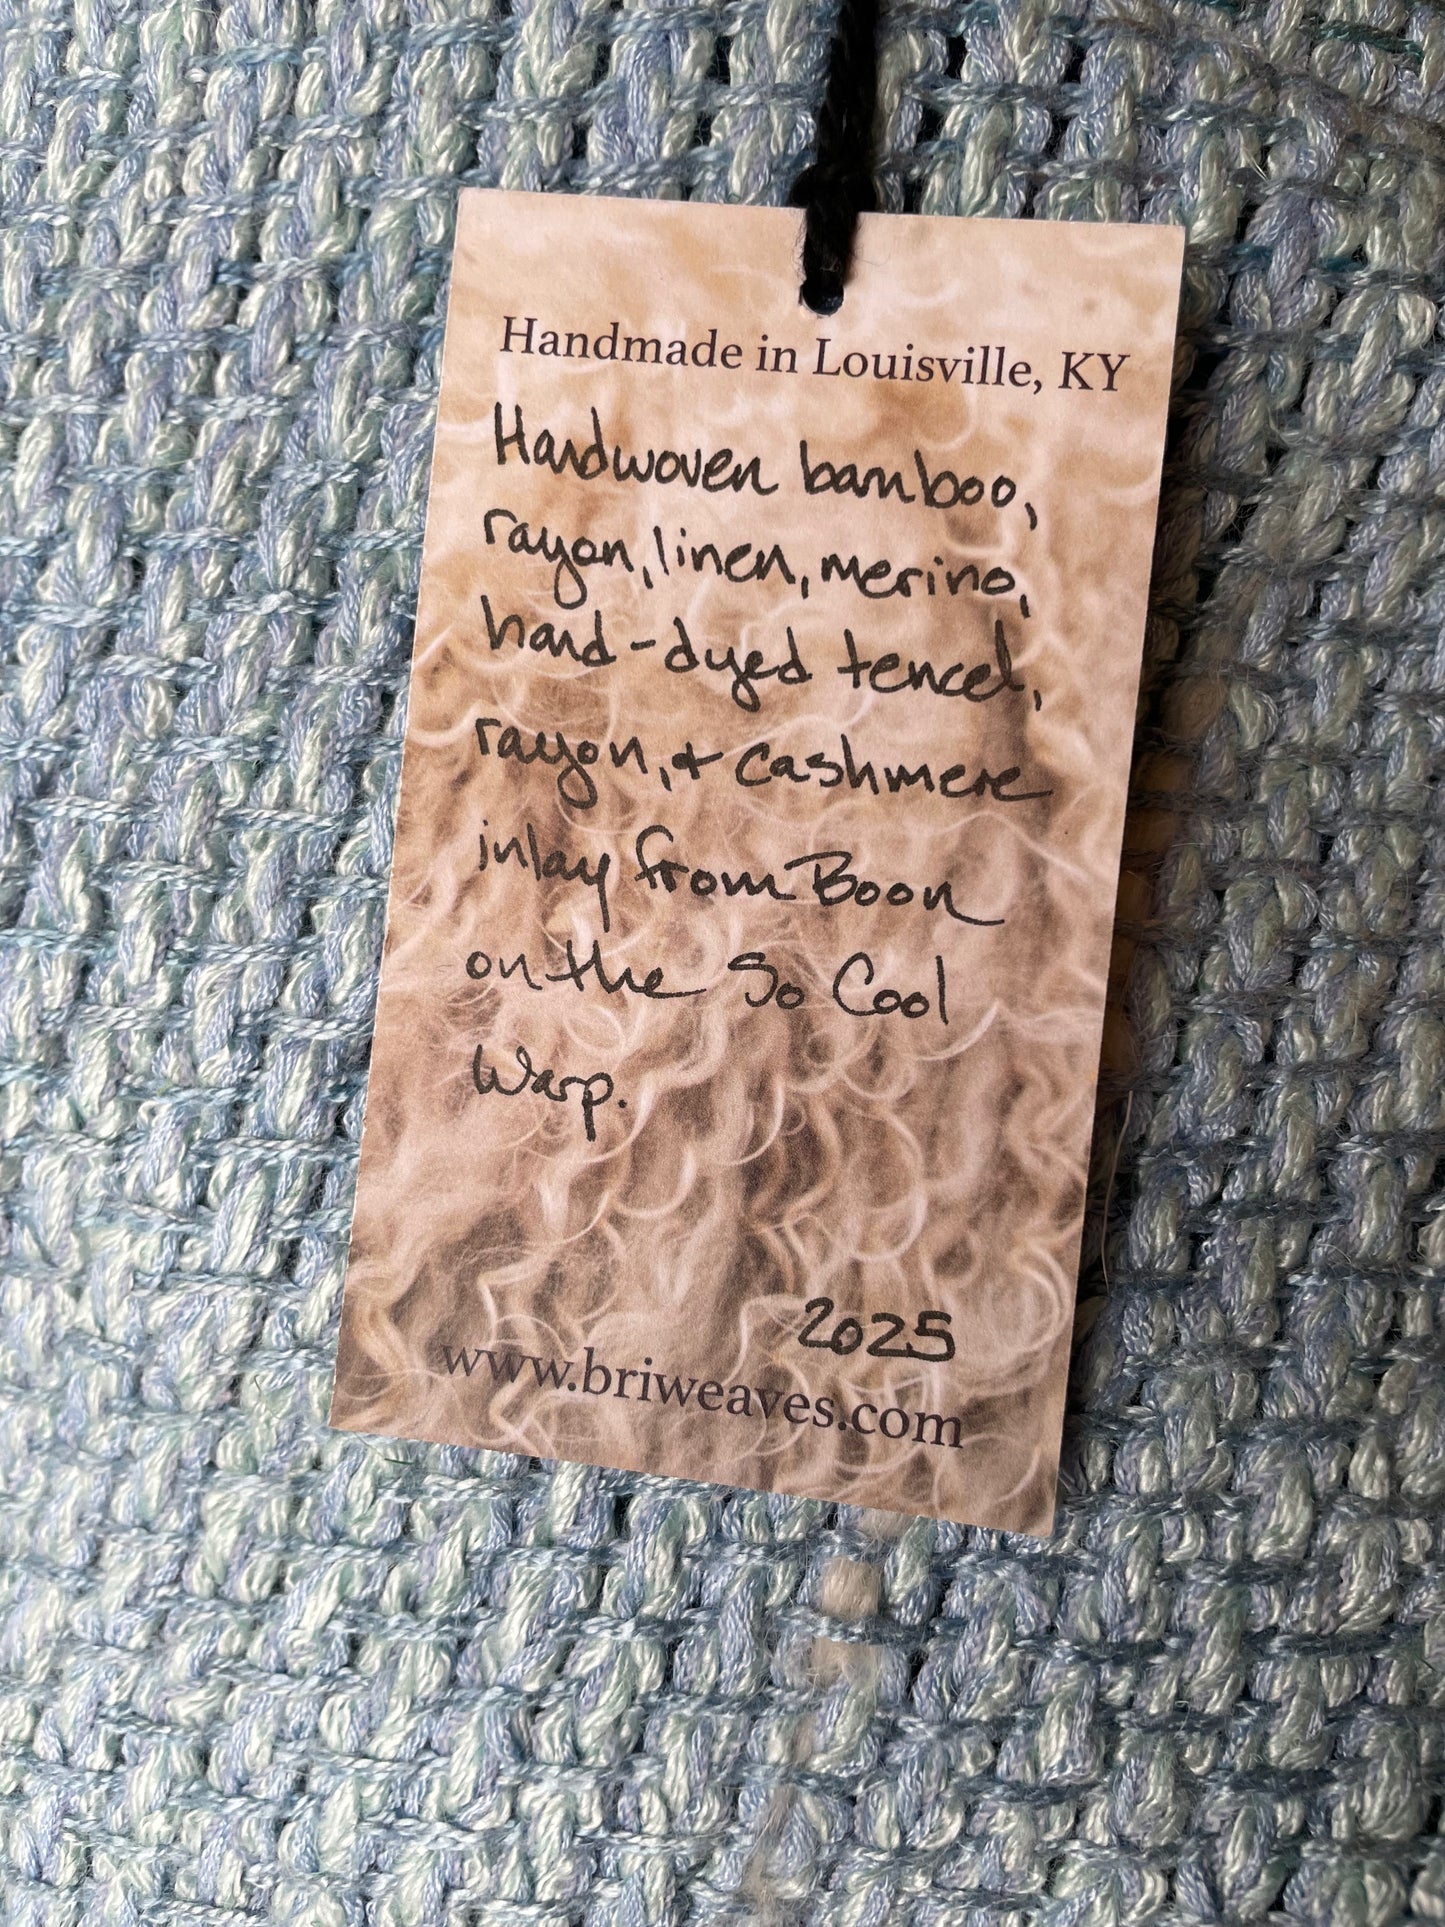 Handmade in Louisville, KY
Handwoven bamboo,
rayon, linen, merino,
hand-dyed tencel,
rayon, + cashmere
inlay from Boon
on the So Cool
Warp.
2025
www.briweaves.com